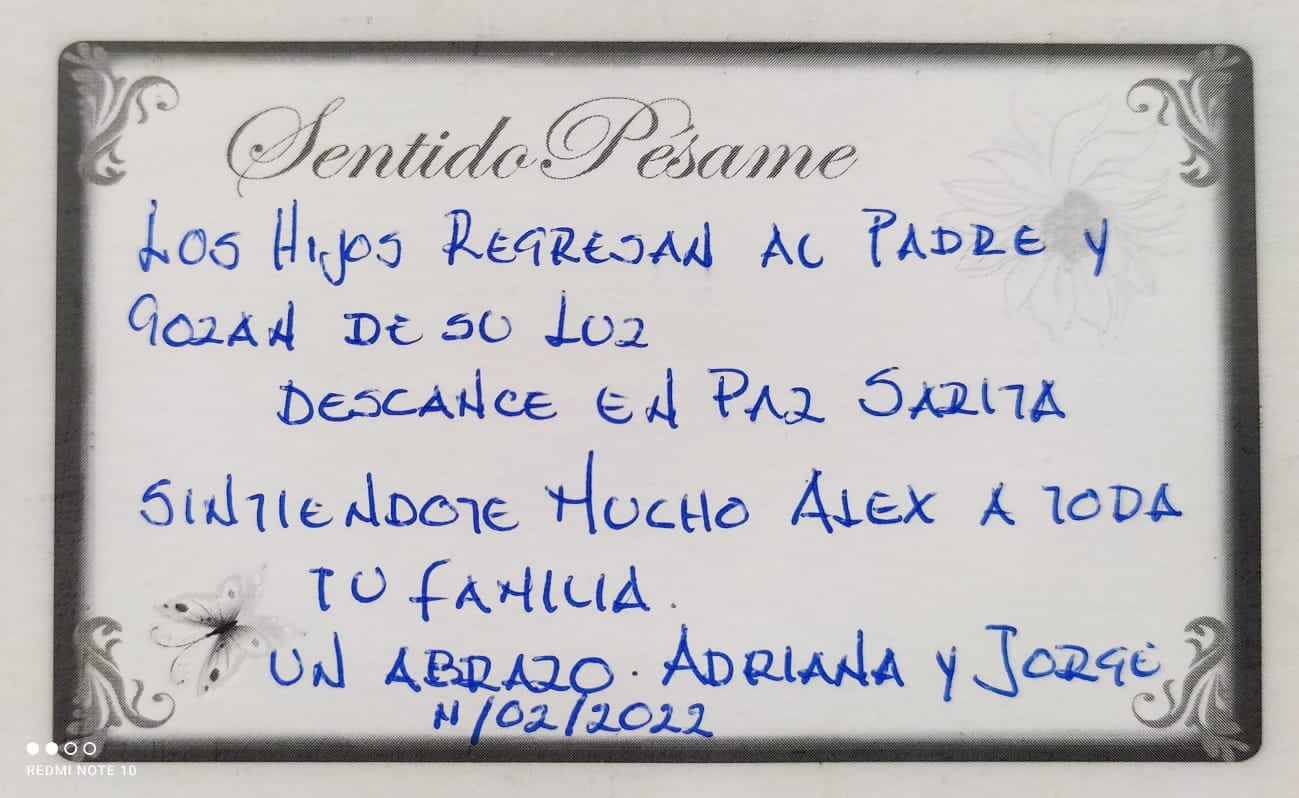 Sentido Pésame
LOS HIJOS REGRESAN AL PADRE Y
GOZAN DE SU LUZ
DESCANCE EN PAZ SARITA
SINTIENDOTE MUCHO ALEX A TODA
TU FAMILIA.
UN ABRAZO. ADRIANA Y JORGE
11/02/2022
REDMI NOTE 10